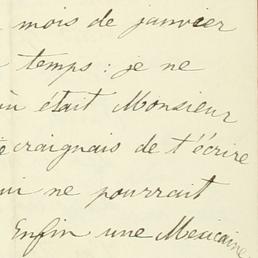 mois de janvier
temps : je ne
où était Monsieur
craignais de t'écrire
qui ne pourrait
Enfin une Mexicaine